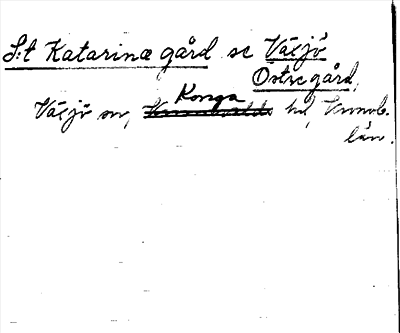 S:t Katarinæ gård se Växjö
Östregård,
Konga
Växjö sn, hd, Kronob.
län.